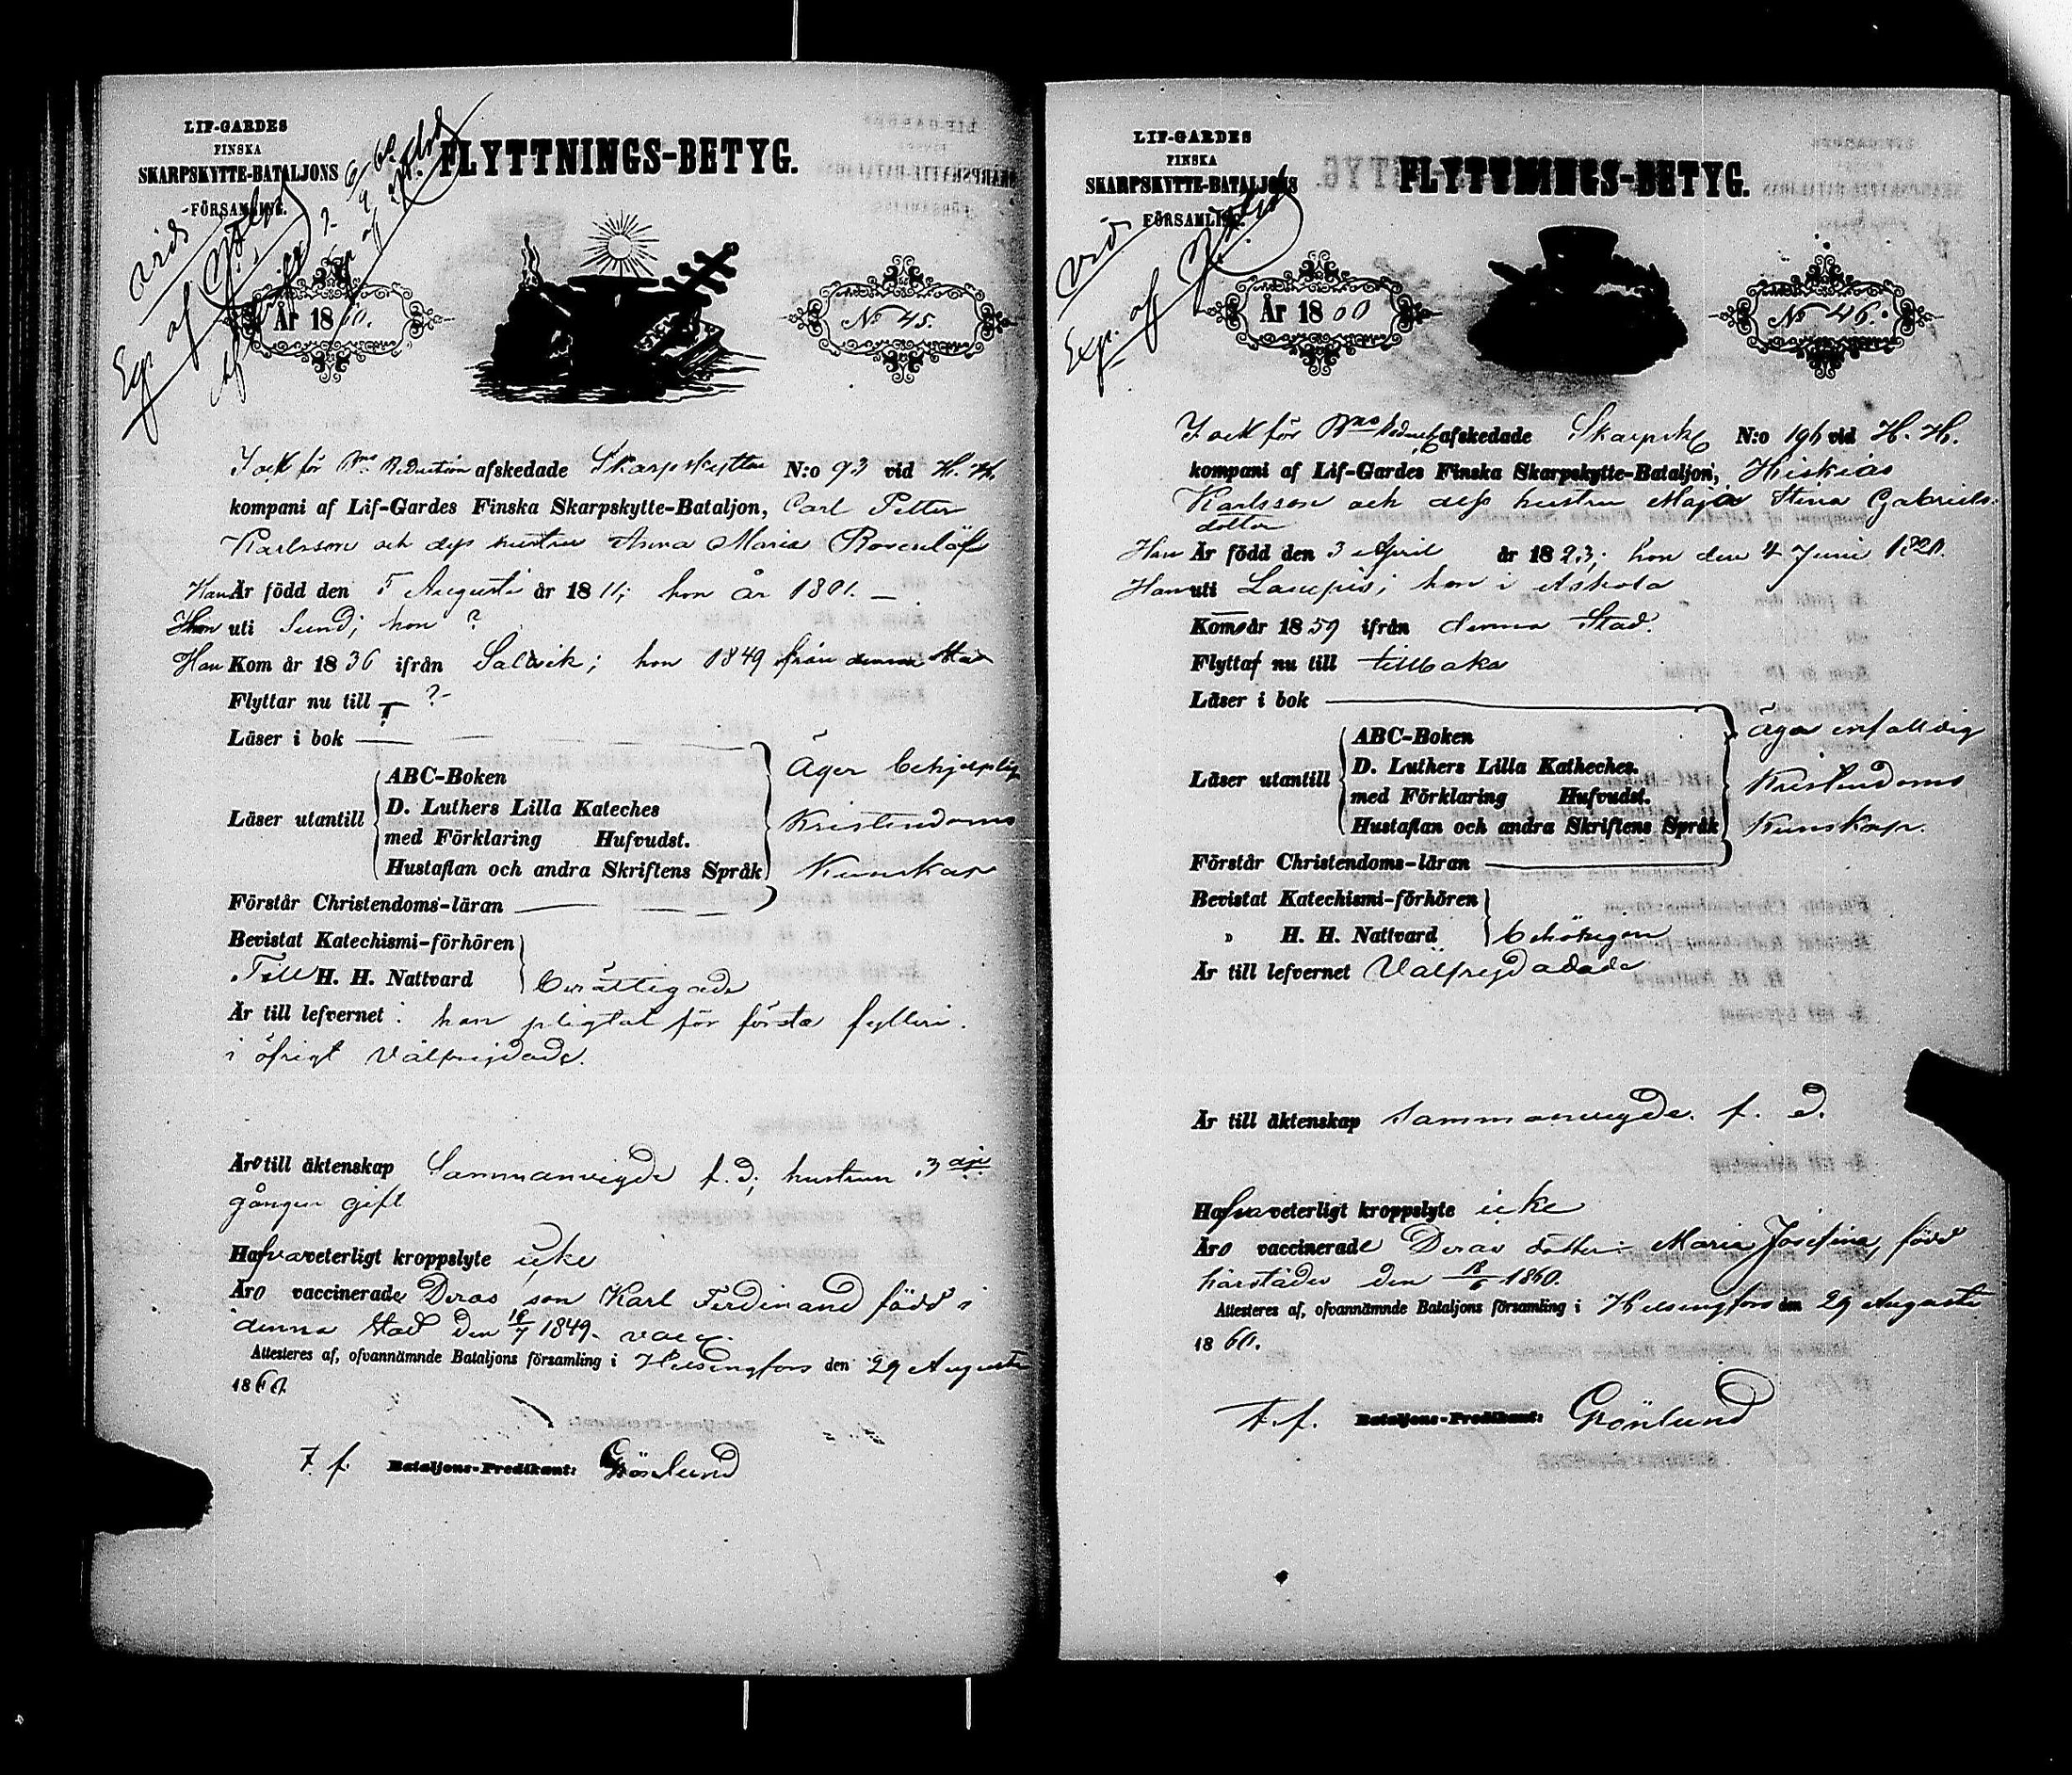 LIF-GARDES
FINSKA
SKARPSKYTTE-BATALJONS
FÖRSAMLING.
FLYTTNINGS-BETYG.
År 1860.
No 45.
I och för Reduction afskedade Skarpskytten N:o 93 vid H. H.
kompani af Lif-Gardes Finska Skarpskytte-Bataljon, Carl Petter
Karlsson och dess hustru Anna Maria Rosenlöf
Han Är född den 5 Augusti år 1811; hon år 1801.
Han uti Sund; hon ?
Han Kom år 1836 ifrån Saltvik; hon 1849 från denna stad
Flyttar nu till ?
Läser i bok
ABC-Boken
Läser utantill D. Luthers Lilla Kateches
med Förklaring Hufvudst.
Hustaflan och andra Skriftens Språk
Äger behjelplig
Kristendoms
Kunskap
Förstår Christendoms-läran
Bevistat Katechismi-förhören
Till H. H. Nattvard berättigade
Är till lefvernet: han pligtat för första fylleri.
i öfrigt välfrejdade.
Äro till äktenskap Sammanvigde f. d; hustrun 3
gången gift
Hafva veterligt kroppslyte icke
Äro vaccinerade Deras son Karl Ferdinand född i
denna stad den 1849. vacc.
Attesteres af, ofvannämnde Bataljons församling i Helsingfors den 29 Augusti
1860.
T. f. Bataljons-Predikant: Grönlund
LIF-GARDES
FINSKA
SKARPSKYTTE-BATALJONS
FÖRSAMLING.
FLYTTNINGS-BETYG.
År 1860
No 46.
I och för afskedade Skarpsk N:o 196 vid H. H.
kompani af Lif-Gardes Finska Skarpskytte-Bataljon, Hiskias
Karlsson och dess hustru Maja Stina Gabriels-
dotter
Han Är född den 3 April år 1823; hon den 4 Juni 1820.
Han uti hon i Askola
Kom år 1859 ifrån denna Stad.
Flytta nu till tillbaka
Läser i bok
ABC-Boken
Läser utantill D. Luthers Lilla Katheches.
med Förklaring Hufvudst.
Hustaflan och andra Skriftens Språk
Äga enfalldig
Kristendoms
Kunskap.
Förstår Christendoms-läran
Bevistat Katechismi-förhören
" H. H. Nattvard behörigen
Är till lefvernet Välfrejdade
Är till äktenskap Sammanvigde f. d.
Hafva veterligt kroppslyte icke
Äro vaccinerade Deras dotter Maria Josefina, född
härstädes den 18/6 1860.
Attesteres af, ofvannämnde Bataljons församling i Helsingfors den 29 Augusti
1860.
T. f. Bataljons-Predikant: Grönlund